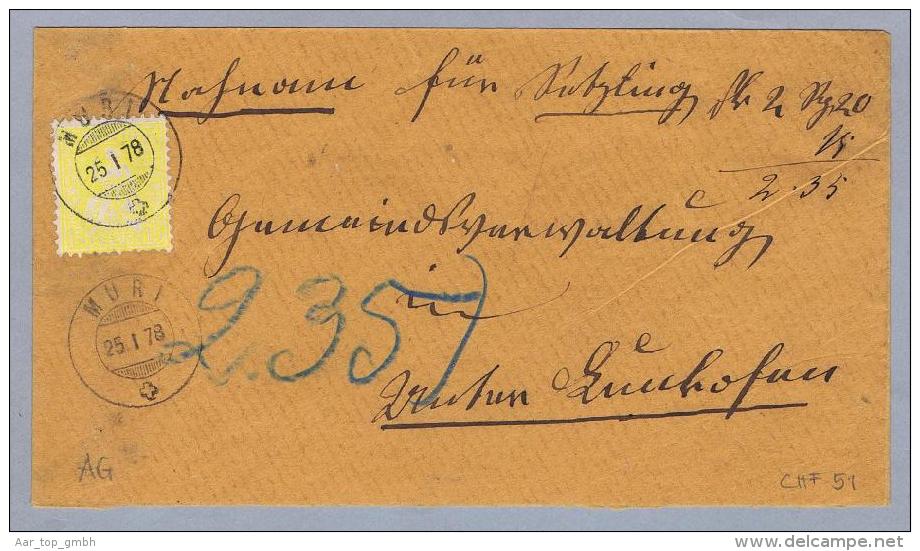 Nachnam für Setzling fr 2 Rp 20
15
2.35
MURI
25 I 78
Gemeindsverwaltung
in
Unter Lunkhofen
2.35
MURI
25. I 78
AG
CHF 51
Aar_top_gmbh
www.delcampe.net